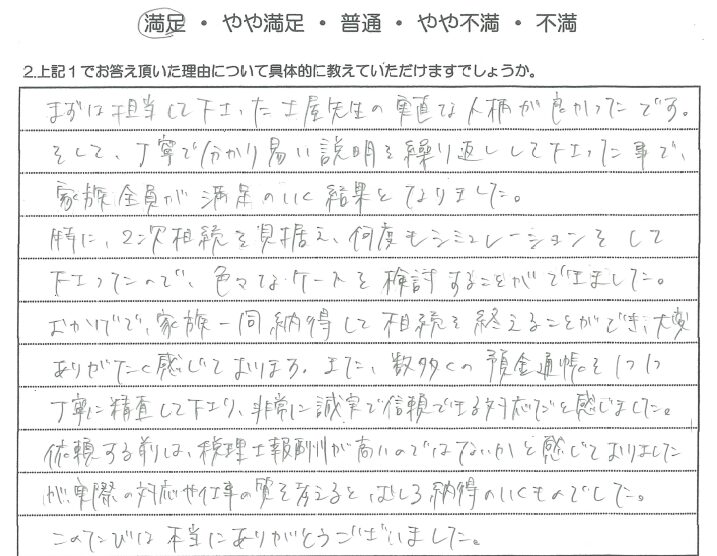 満足 ・ やや満足 ・ 普通 ・ やや不満 ・ 不満
2.上記1でお答え頂いた理由について具体的に教えていただけますでしょうか。
まずは担当して下さった土屋先生の実直な人柄が良かったです。
そして、丁寧で分かり易い説明を繰り返しして下さった事で、
家族全員が満足のいく結果となりました。
特に、2次相続を見据え、何度もシミュレーションをして
下さったので、色々なケースを検討することができました。
おかげで、家族一同納得して相続を終えることができ、大変
ありがたく感じております。また、数多くの預金通帳を1つ1つ
丁寧に精査して下さり、非常に誠実で信頼できる対応だと感じました。
依頼する前は、税理士報酬が高いのではないかと感じておりました
が、実際の対応や仕事の質を考えるとむしろ納得のいくものでした。
このたびは本当にありがとうございました。